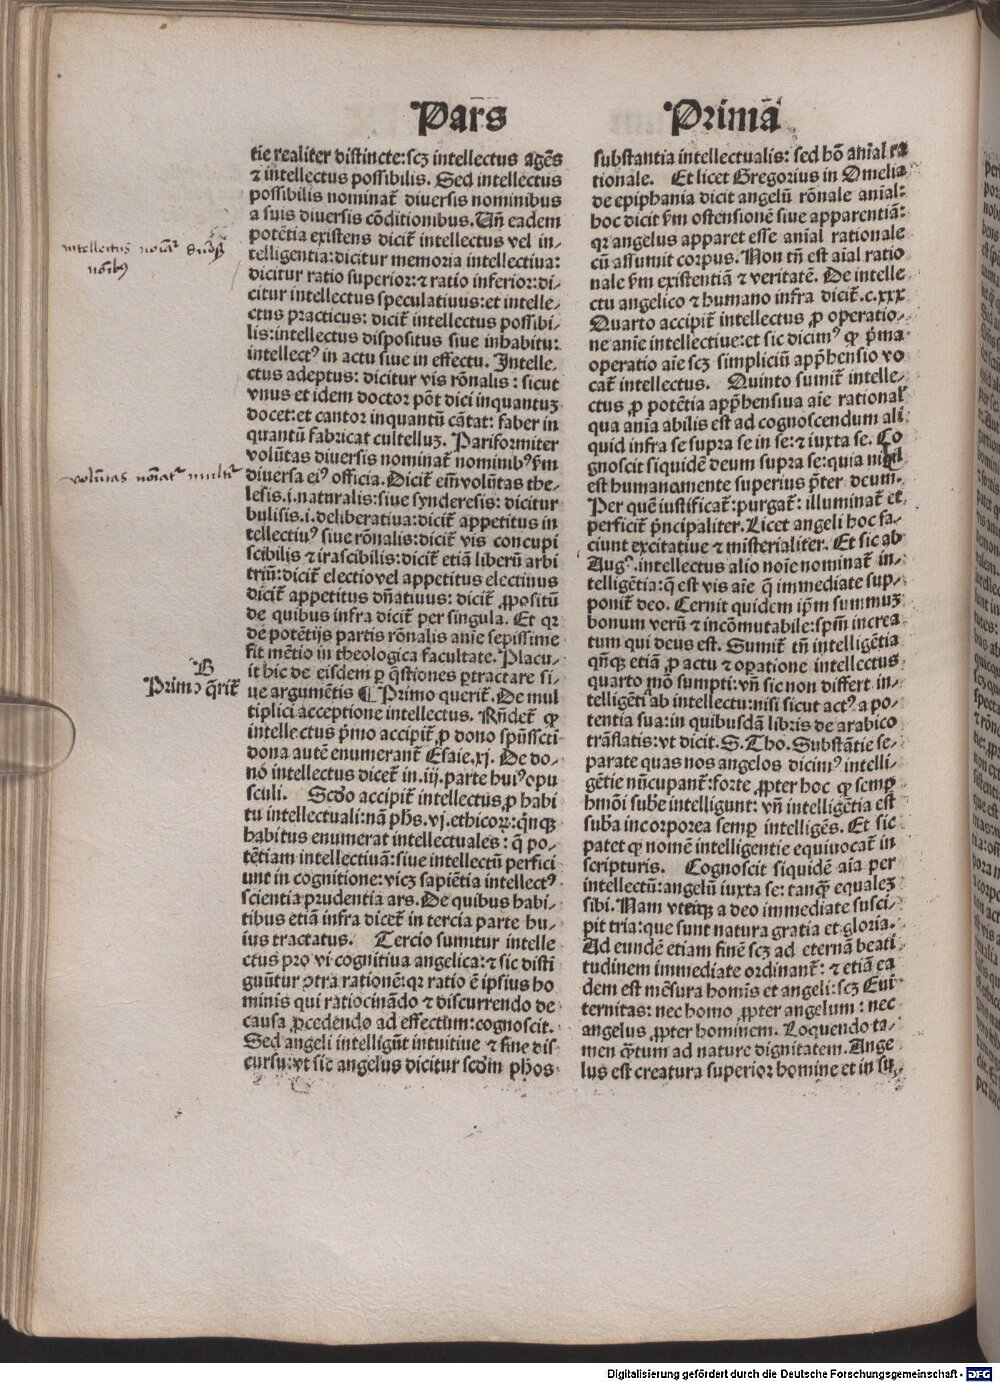 Pars Primā
tie realiter distincte:scꝫ intellectus agēs
⁊ intellectus possibilis. Sed intellectus
possibilis nominat̄ diuersis nominibus
a suis diuersis cōditionibus. Uñ eadem
potētia existens dicit̄ intellectus vel in-
telligentia:dicitur memoria intellectiua:
dicitur ratio superior:⁊ ratio inferior:di-
citur intellectus speculatiuus:et intelle-
ctus practicus: dicit̄ intellectus possibi-
lis:intellectus dispositus siue inhabitu:
intellectꝰ in actu siue in effectu. Intelle-
ctus adeptus: dicitur vis rōnalis: sicut
vnus et idem doctor pōt dici inquantuꝫ
docet:et cantor inquantū cātat: faber in
quantū fabricat cultelluꝫ. Pariformiter
volūtas diuersis nominat̄ nominibꝰ ẜm
diuersa eiꝰ officia. Dicit̄ em̄ volūtas the-
lesis.i.naturalis:siue synderesis: dicitur
bulisis.i.deliberatiua:dicit̄ appetitus in
tellectiuꝰ siue rōnalis:dicit̄ vis concupi
scibilis ⁊ irascibilis:dicit̄ etiā liberū arbi
triū:dicit̄ electio vel appetitus electiuus
dicit̄ appetitus dn̄atiuus: dicit̄ ꝓpositū
de quibus infra dicit̄ per singula. Et qꝛ
de potētijs partis rōnalis anie sepissime
fit mētio in theologica facultate. Placu-
it hic de eisdem ꝑ q̄stiones ꝑtractare si-
ue argumētis ¶ Primo querit̄. De mul
tiplici acceptione intellectus. Rn̄det̄ ꝙ
intellectus p̄mo accipit̄ ꝓ dono spūssctī
dona autē enumerant̄ Esaie.xj. De do-
no intellectus dicet̄ in.iij.parte huiꝰ opu
sculi. Scdo accipit̄ intellectus ꝓ habi
tu intellectuali:nā ph̄s.vj.ethicoꝝ:qnqꝫ
habitus enumerat intellectuales: q̄ po-
tētiam intellectiuā:siue intellectū perfici
unt in cognitione:vicꝫ sapiētia intellectꝰ
scientia prudentia ars. De quibus habi-
tibus etiā infra dicet̄ in tercia parte hu-
ius tractatus. Tercio sumitur intelle
ctus pro vi cognitiua angelica:⁊ sic disti
guūtur ꝯtra rationē:qꝛ ratio ē ipsius ho
minis qui ratiocinādo ⁊ discurrendo de
causa ꝓcedendo ad effectum:cognoscit.
Sed angeli intelligūt intuitiue ⁊ sine dis
cursu:vt sic angelus dicitur scdm ph̄os
substantia intellectualis: sed hō anīal ra
tionale. Et licet Gregorius in Omelia
de epiphania dicit angelū rōnale anīal:
hoc dicit ẜm ostensionē siue apparentiā:
qꝛ angelus apparet esse anīal rationale
cū assumit corpus. Non tn̄ est aīal ratio
nale ẜm existentiā ⁊ veritatē. De intelle
ctu angelico ⁊ humano infra dicit̄.c.xxx
Quarto accipit̄ intellectus ꝓ operatio-
ne anie intellectiue:et sic dicimꝰ ꝙ p̄ma
operatio aīe scꝫ simpliciū app̄hensio vo
cat̄ intellectus. Quinto sumit̄ intelle-
ctus ꝓ potētia app̄hensiua aīe rational̄
qua anīa abilis est ad cognoscendum ali
quid infra se supra se in se:⁊ iuxta se. Co
gnoscit siquidē deum supra se:quia nihil
est humanamente superius p̄ter deum.
Per quē iustificat̄:purgat̄: illuminat̄ et
perficit̄ p̄ncipaliter. Licet angeli hoc fa-
ciunt excitatiue ⁊ misterialiter. Et sic ab
Augꝰ.intellectus alio noīe nominat̄ in-
telligētia:q̄ est vis aīe q̄ immediate sup-
ponit̄ deo. Cernit quidem ip̄m summuꝫ
bonum verū ⁊ incōmutabile:spm̄ increa
tum qui deus est. Sumit̄ tn̄ intelligētia
qn̄qꝫ etiā ꝓ actu ⁊ oꝑatione intellectus
quarto mō sumpti:vn̄ sic non differt in-
telligēti ab intellectu:nisi sicut actꝰ a po-
tentia sua:in quibusdā libris de arabico
trāslatis:vt dicit.S.Tho. Substātie se-
parate quas nos angelos dicimꝰ intelli-
gētie nūcupant̄:forte ꝓpter hoc ꝙ semꝑ
hmōi sube intelligunt: vn̄ intelligētia est
suba incorporea semꝑ intelligēs. Et sic
patet ꝙ nomē intelligentie equiuocat̄ in
scripturis. Cognoscit siquidē aīa per
intellectū:angelū iuxta se: tanqꝫ equaleꝫ
sibi. Nam vterqꝫ a deo immediate susci-
pit tria:que sunt natura gratia et gloria.
Ad eundē etiam finē scꝫ ad eternā beati
tudinem immediate ordinant̄: ⁊ etiā ea
dem est mēsura homīs et angeli:scꝫ Eui
ternitas: nec homo ꝓpter angelum: nec
angelus ꝓpter hominem. Loquendo ta-
men q̄tum ad nature dignitatem. Ange
lus est creatura superior homine et in su
intellectus noīat̄
nōībꝰ
volūntas noīat̄ mult̄
B
Primo q̄rit̄
Digitalisierung gefördert durch die Deutsche Forschungsgemeinschaft - DFG